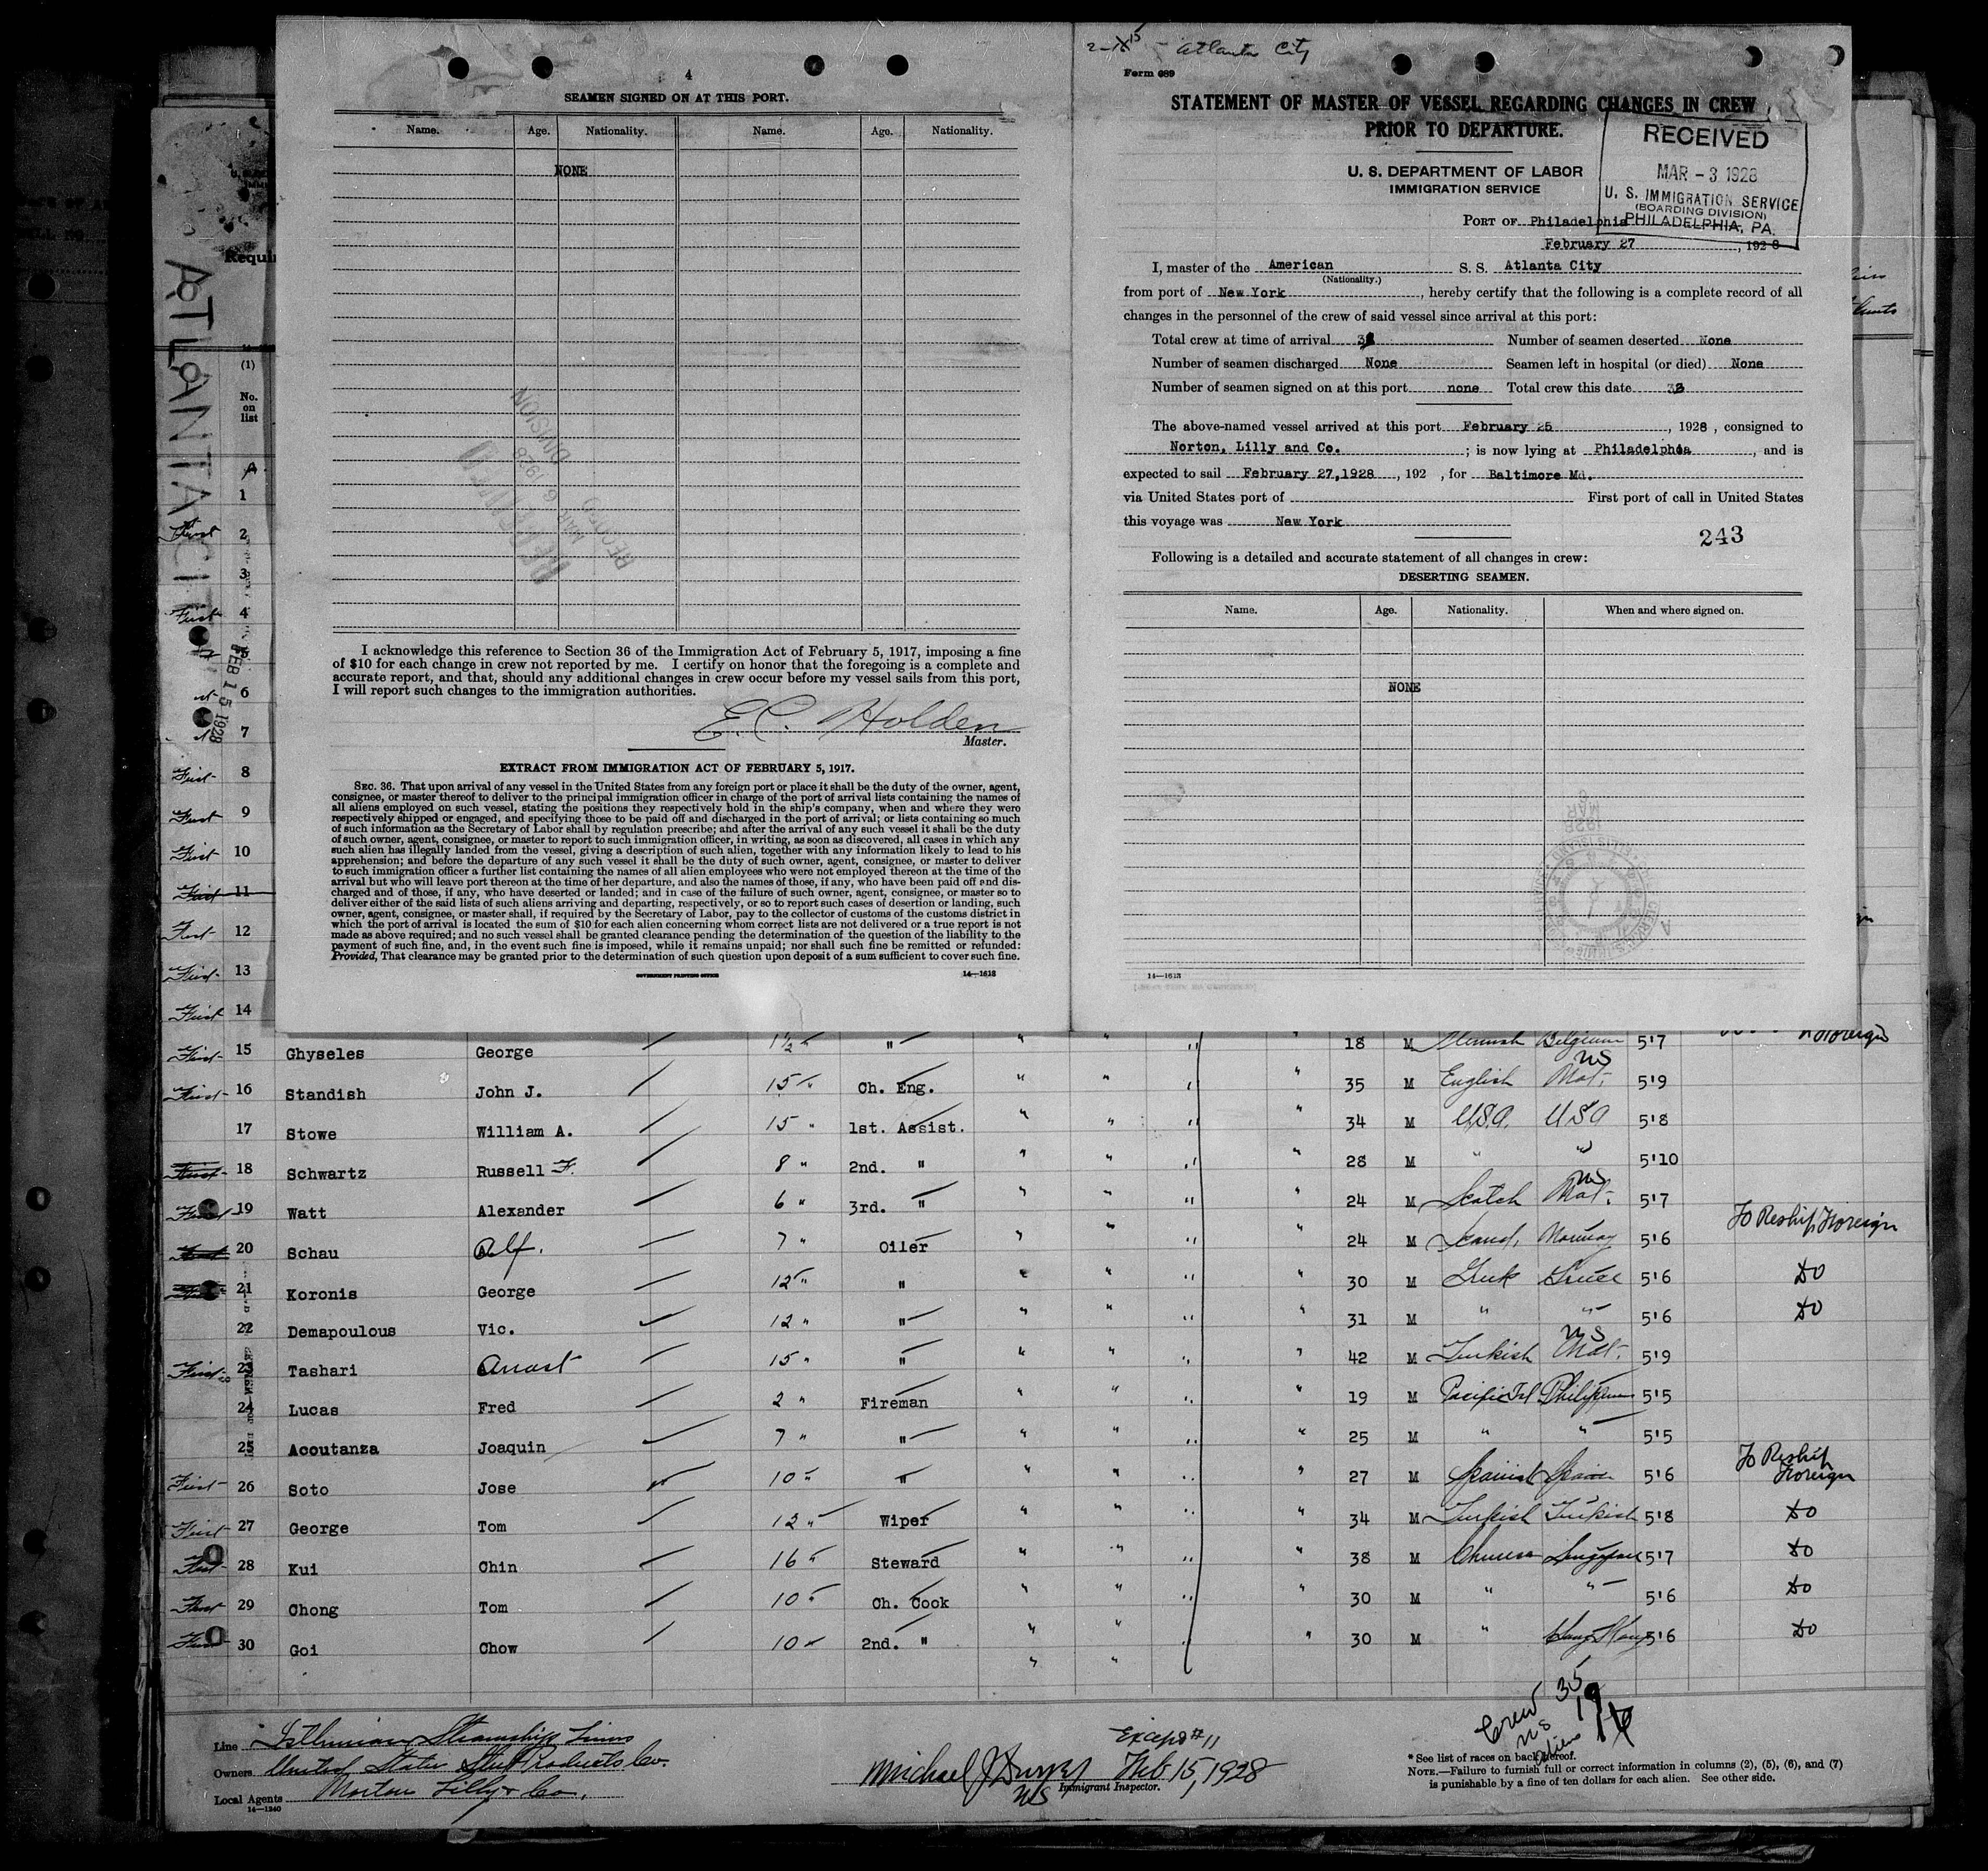 4
SEAMEN SIGNED ON AT THIS PORT.
Name. Age. Nationality. Name. Age. Nationality.
NONE
I acknowledge this reference to Section 36 of the Immigration Act of February 5, 1917, imposing a fine
of $10 for each change in crew not reported by me. I certify on honor that the foregoing is a complete and
accurate report, and that, should any additional changes in crew occur before my vessel sails from this port,
I will report such changes to the immigration authorities.
E.C. Holden
Master.
EXTRACT FROM IMMIGRATION ACT OF FEBRUARY 5, 1917.
SEC. 36. That upon arrival of any vessel in the United States from any foreign port or place it shall be the duty of the owner, agent,
consignee, or master thereof to deliver to the principal immigration officer in charge of the port of arrival lists containing the names of
all aliens employed on such vessel, stating the positions they respectively hold in the ship's company, when and where they were
respectively shipped or engaged, and specifying those to be paid off and discharged in the port of arrival; or lists containing so much
of such information as the Secretary of Labor shall by regulation prescribe; and after the arrival of any such vessel it shall be the duty
of such owner, agent, consignee, or master to report to such immigration officer, in writing, as soon as discovered, all cases in which any
such alien has illegally landed from the vessel, giving a description of such alien, together with any information likely to lead to his
apprehension; and before the departure of any such vessel it shall be the duty of such owner, agent, consignee, or master to deliver
to such immigration officer a further list containing the names of all alien employees who were not employed thereon at the time of the
arrival but who will leave port thereon at the time of her departure, and also the names of those, if any, who have been paid off and dis-
charged and of those, if any, who have deserted or landed; and in case of the failure of such owner, agent, consignee, or master so to
deliver either of the said lists of such aliens arriving and departing, respectively, or so to report such cases of desertion or landing, such
owner, agent, consignee, or master shall, if required by the Secretary of Labor, pay to the collector of customs of the customs district in
which the port of arrival is located the sum of $10 for each alien concerning whom correct lists are not delivered or a true report is not
made as above required; and no such vessel shall be granted clearance pending the determination of the question of the liability to the
payment of such fine, and, in the event such fine is imposed, while it remains unpaid; nor shall such fine be remitted or refunded:
Provided, That clearance may be granted prior to the determination of such question upon deposit of a sum sufficient to cover such fine.
GOVERNMENT PRINTING OFFICE 14—1613
Atlanta City
Form 689
STATEMENT OF MASTER OF VESSEL REGARDING CHANGES IN CREW
PRIOR TO DEPARTURE.
RECEIVED
MAR - 3 1928
U. S. IMMIGRATION SERVICE
(BOARDING DIVISION)
PHILADELPHIA, PA.
U. S. DEPARTMENT OF LABOR
IMMIGRATION SERVICE
PORT OF Philadelphia
February 27, 1928
I, master of the American S. S. Atlanta City
(Nationality.)
from port of New York, hereby certify that the following is a complete record of all
changes in the personnel of the crew of said vessel since arrival at this port:
Total crew at time of arrival Number of seamen deserted None
Number of seamen discharged None Seamen left in hospital (or died) None
Number of seamen signed on at this port none Total crew this date
The above-named vessel arrived at this port February 25, 1928, consigned to
Norton, Lilly and Co. ; is now lying at Philadelphia, and is
expected to sail February 27,1928, 192 , for Baltimore Md.
via United States port of First port of call in United States
this voyage was New York
243
Following is a detailed and accurate statement of all changes in crew:
DESERTING SEAMEN.
Name. Age. Nationality. When and where signed on.
NONE
14—1613
ATLANTA CITY
FEB 15 1928
(1)
No.
on
list
1
First 2
3
First 4
5
6
7
First 8
First 9
First 10
First 11
First 12
First 13
First 14
First 15 Ghyseles George 1½ " " " " " 18 M Flemish Belgium 5'7
First 16 Standish John J. 15 " Ch. Eng. " " " " 35 M English US Nat. 5'9
17 Stowe William A. 15 " 1st. Assist. " " " " 34 M U.S.A. USA 5'8
First 18 Schwartz Russell F. 8 " 2nd. " " " " " 28 M " " 5'10
First 19 Watt Alexander 6 " 3rd. " " " " " 24 M Scotch US Nat. 5'7
First 20 Schau Alf. 7 " Oiler " " " " 24 M Scand. Norway 5'6 To Reship Foreign
21 Koronis George 12 " " " " " " 30 M Greek Greece 5'6 DO
22 Demapoulous Vic. 12 " " " " " " 31 M " " 5'6 DO
First 23 Tashari Anast 15 " " " " " " 42 M Turkish US Nat. 5'9
24 Lucas Fred 2 " Fireman " " " " 19 M Pacific Isl Philippines 5'5
25 Acoutanza Joaquin 7 " " " " " " 25 M " " 5'5
First 26 Soto Jose 10 " " " " " " 27 M Spanish Spain 5'6 To Reship Foreign
First 27 George Tom 12 " Wiper " " " " 34 M Turkish Turkish 5'8 DO
First 28 Kui Chin 16 " Steward " " " " 38 M Chinese 5'7 DO
First 29 Chong Tom 10 " Ch. Cook " " " " 30 M " " 5'6 DO
First 30 Goi Chow 10 " 2nd. " " " " " 30 M " Hong Kong 5'6 DO
Crew 35
US 19
Aliens 16
Line Isthmian Steamship Lines
Owners United States Steel Products Co.
Local Agents Norton Lilly & Co.
14—1240
Except #11
Michael J Feb 15, 1928
Immigrant Inspector.
* See list of races on back hereof.
NOTE.—Failure to furnish full or correct information in columns (2), (5), (6), and (7)
is punishable by a fine of ten dollars for each alien. See other side.